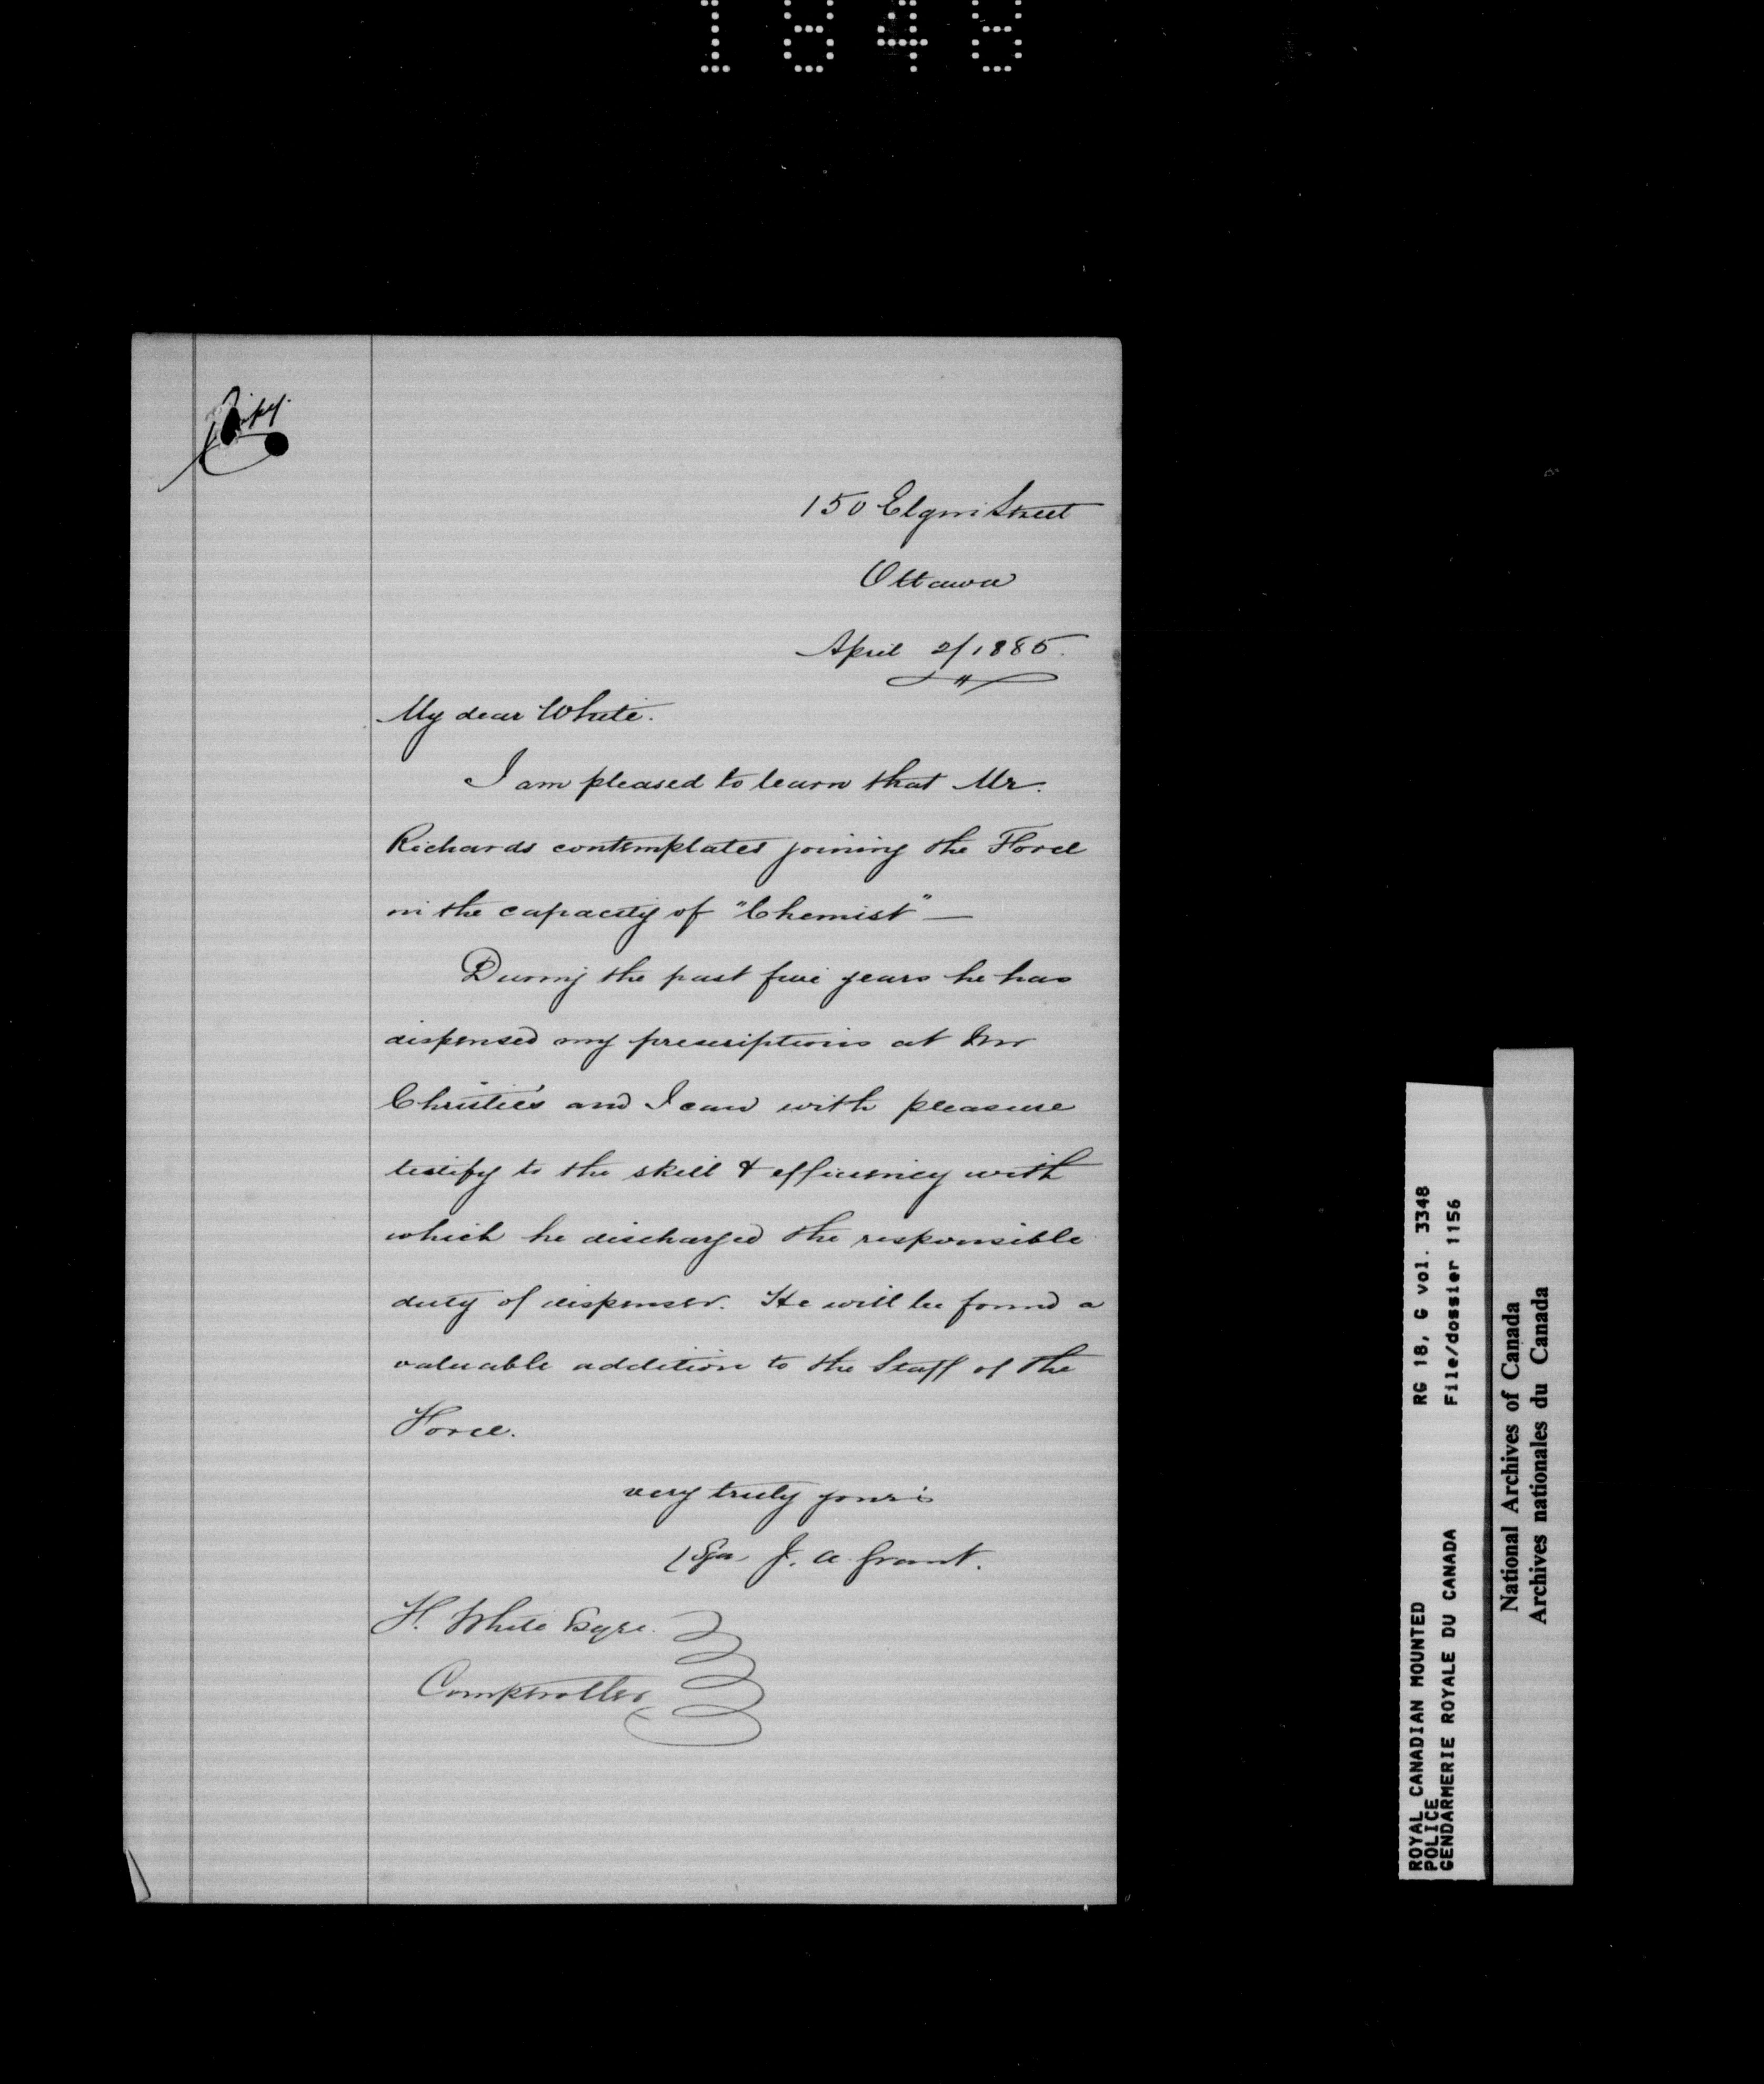 1848
Copy.
150 Elgin Street
Ottawa
April 2/1885.
My dear White.
I am pleased to learn that Mr.
Richards contemplates joining the Force
in the capacity of "Chemist" —
During the past five years he has
dispensed my prescriptions at Mr
Christie's and I can with pleasure
testify to the skill & efficiency with
which he discharged the responsible
duty of dispenser. He will be found a
valuable addition to the Staff of the
Force.
very truly yours
(Sgd J. A. Grant.
F. White Esqre.
Comptroller
ROYAL CANADIAN MOUNTED
POLICE
GENDARMERIE ROYALE DU CANADA
RG 18, G vol. 3348
File/dossier 1156
National Archives of Canada
Archives nationales du Canada